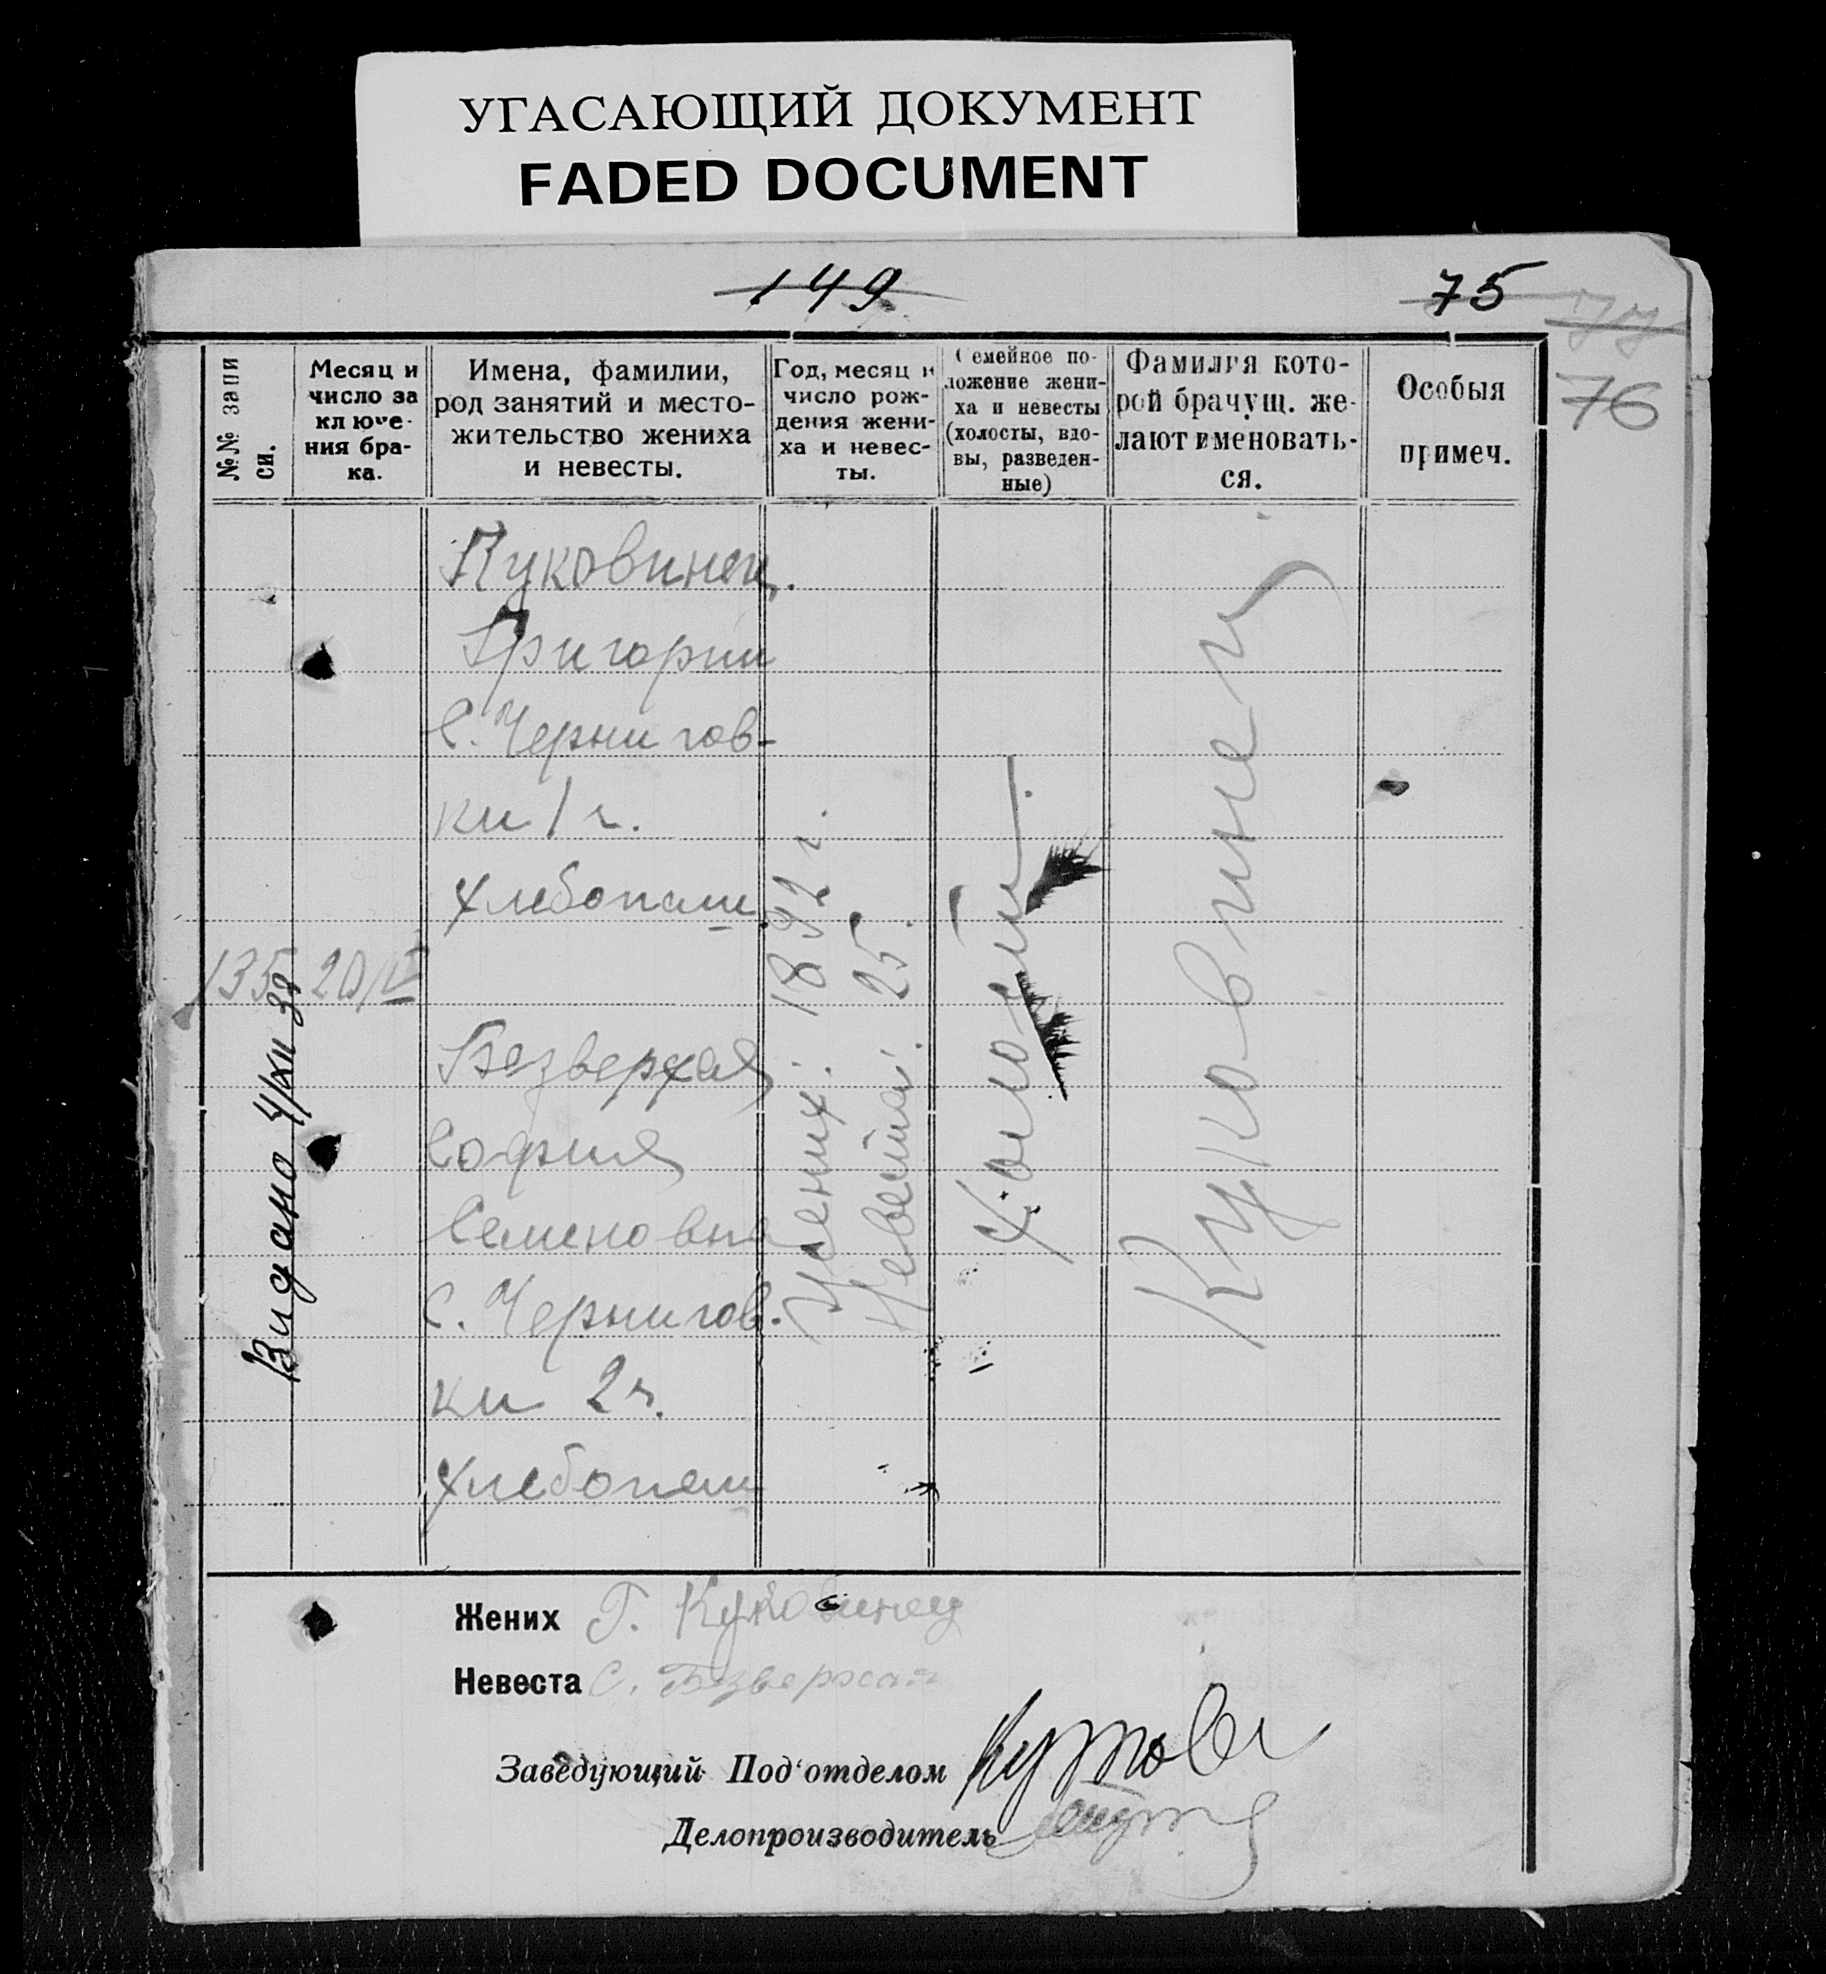 УГАСАЮЩИЙ ДОКУМЕНТ
FADED DOCUMENT
149
75
77
76
№№ запи
си.
Месяц и
число за
ключе-
ния бра-
ка.
Имена, фамилии,
род занятий и место-
жительство жениха
и невесты.
Год, месяц и
число рож-
дения жени-
ха и невес-
ты.
Семейное по-
ложение жени-
ха и невесты
(холосты, вдо-
вы, разведен-
ные)
Фамилия кото-
рой брачущ. же-
лают именовать-
ся.
Особыя
примеч.
135
20/V
Видано 4/XII 39
Куковинец.
Григорий
С. Чернигов-
ки 1 ч.
хлебопаш.
Безверхая
София
Семеновна
С. Чернигов-
ки 2 ч.
хлебопаш
Жених: 1892 г.
Невеста: 25.
Холостий.
Куковинец
Жених Г. Куковинец
Невеста С. Безверхая
Заведующий Под'отделом
Делопроизводитель